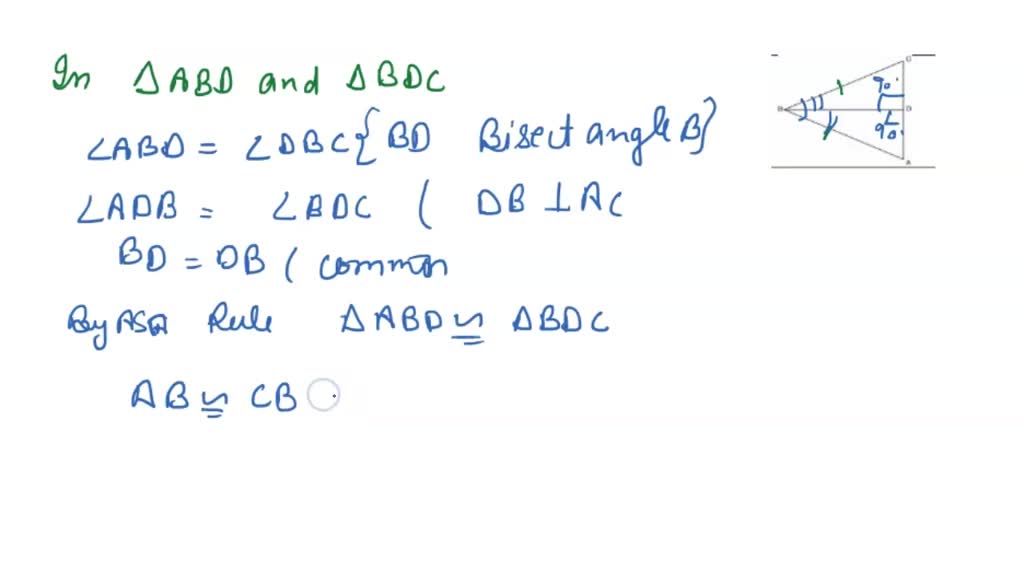 In △ABD and △BDC
∠ABD = ∠DBC { BD Bisect angle B }
∠ADB = ∠BDC ( DB ⊥ AC
BD = DB ( common
By ASA Rule △ABD ≅ △BDC
AB ≅ CB
C
90°
B
D
90
A